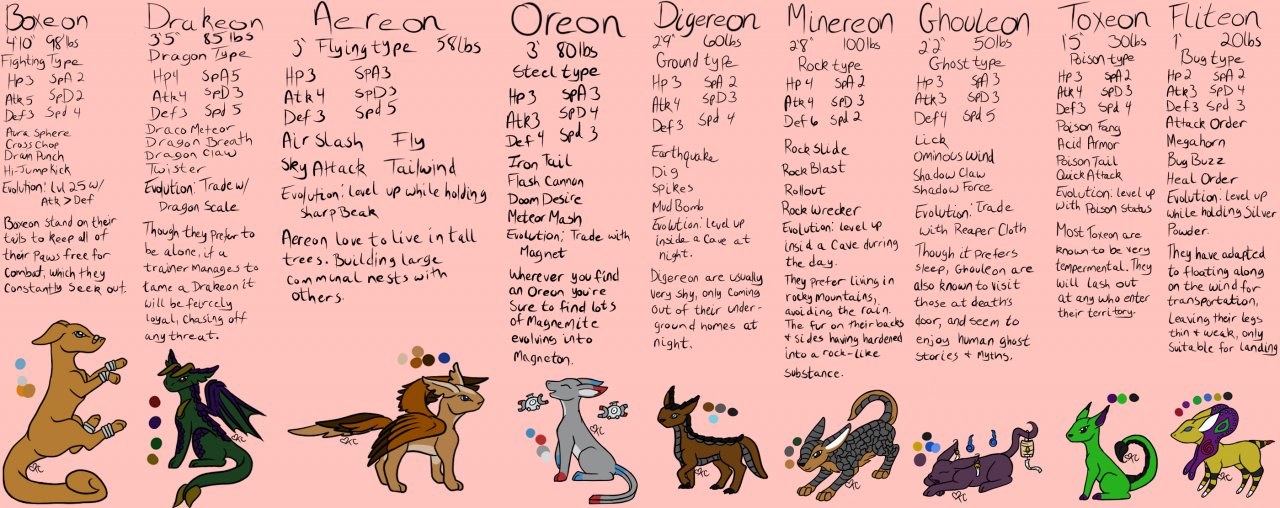 Boxeon
4'10" 98lbs
Fighting Type
Hp3 SpA 2
Atk5 SpD 2
Def3 Spd 4
Aura Sphere
Cross Chop
Drain Punch
Hi-Jump Kick
Evolution: Lvl 25 w/
Atk > Def
Boxeon stand on their
tails to keep all of
their paws free for
combat, which they
constantly seek out.
Drakeon
3'5" 85lbs
Dragon Type
Hp4 SpA5
Atk4 SpD3
Def3 Spd 5
Draco Meteor
Dragon Breath
Dragon Claw
Twister
Evolution: Trade w/
Dragon Scale
Though they prefer to
be alone, if a
trainer manages to
tame a Drakeon it
will be feircely
loyal, chasing off
any threat.
Aereon
3' Flying type 58lbs
Hp3 SpA3
Atk4 SpD3
Def3 Spd5
Air Slash Fly
Sky Attack Tailwind
Evolution: level up while holding
sharp Beak
Aereon love to live in tall
trees. Building large
communal nests with
others.
Oreon
3' 80lbs
Steel type
Hp3 SpA 3
Atk3 SpD4
Def4 Spd 3
Iron Tail
Flash Cannon
Doom Desire
Meteor Mash
Evolution: Trade with
Magnet
Wherever you find
an Oreon you're
Sure to find lots
of Magnemite
evolving into
Magneton.
Digereon
2'9" 60lbs
Ground type
Hp3 SpA 2
Atk4 SpD3
Def3 Spd 4
Earthquake
Dig
Spikes
Mud Bomb
Evolution: level up
inside a Cave at
night.
Digereon are usually
very shy, only coming
out of their under-
ground homes at
night.
Minereon
2'8" 100lbs
Rock type
Hp4 SpA 2
Atk4 SpD3
Def6 Spd 2
Rock Slide
Rock Blast
Rollout
Rock Wrecker
Evolution: level up
insid a Cave durring
the day.
They prefer living in
rocky mountains,
avoiding the rain.
The fur on their backs
& sides having hardened
into a rock-like
substance.
Ghouleon
2'2" 50lbs
Ghost type
Hp3 SpA3
Atk3 SpD3
Def4 Spd5
Lick
Ominous Wind
Shadow Claw
Shadow Force
Evolution: Trade
with Reaper Cloth
Though it prefers
sleep, Ghouleon are
also known to visit
those at death's
door, and seem to
enjoy human ghost
stories & Myths.
Toxeon
1'5" 30lbs
Poison type
Hp3 SpA2
Atk3 SpD2
Def3 Spd 4
Poison Fang
Acid Armor
Poison Tail
Quick Attack
Evolution: level up
with Poison Status
Most Toxeon are
known to be very
tempermental. They
will lash out
at any who enter
their territory.
Fliteon
1' 20lbs
Bug type
Hp2 SpA 2
Atk3 SpD 4
Def3 Spd 3
Attack Order
Megahorn
Bug Buzz
Heal Order
Evolution: level up
while holding Silver
Powder.
They have adapted
to floating along
on the wind for
transportation,
leaving their legs
thin & weak, only
suitable for landing